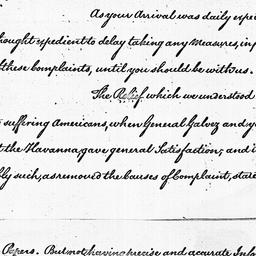 As your Arrival was daily expe
hought expedient to delay taking any Measures, in
these Complaints, until you should be with us.
The Relief which we understood
suffering Americans, when General Galvez and y
t the Havanna, gave general Satisfaction; and i
bly such, as removed the Causes of Complaint, sta
Papers. But not having precise and accurate Info